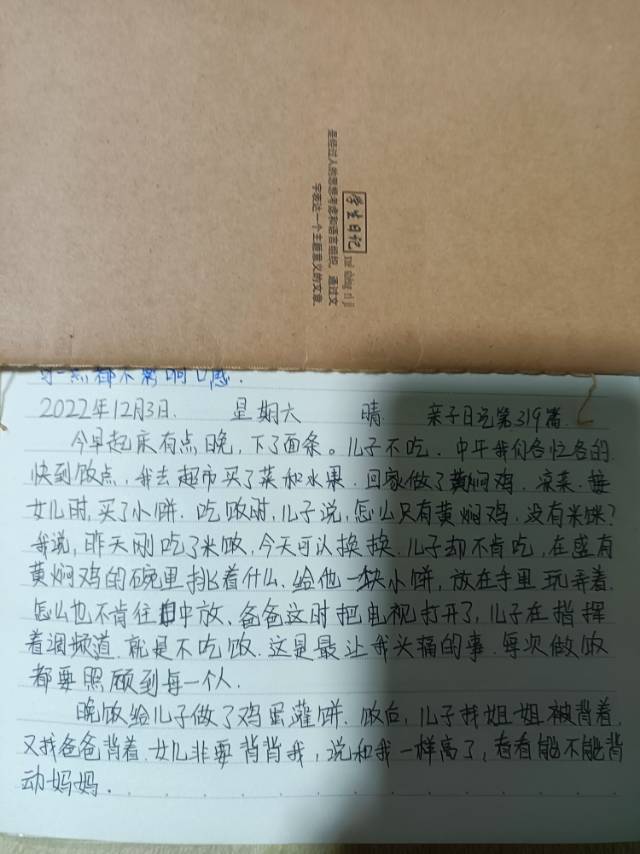 学生日记
xué shēng rì jì
是经过人的思想考虑和语言组织，通过文
字表达一个主题意义的文章。
一点都不影响口感.
2022年12月3日.  星期六  晴  亲子日记第319篇.
今早起床有点晚,下了面条。儿子不吃.中午我们各忙各的.
快到饭点,我去超市买了菜和水果.回家做了黄焖鸡.凉菜.接
女儿时,买了小饼.吃饭时,儿子说,怎么只有黄焖鸡,没有米饭?
我说,昨天刚吃了米饭,今天可以换换.儿子却不肯吃,在盛有
黄焖鸡的碗里挑着什么.给他一块小饼,放在手里玩弄着.
怎么也不肯往口中放、爸爸这时把电视打开了,儿子在指挥
着调频道.就是不吃饭.这是最让我头痛的事.每次做饭
都要照顾到每一个人.
晚饭给儿子做了鸡蛋灌饼.饭后,儿子找姐姐被背着.
又找爸爸背着.女儿非要背背我,说和我一样高了,看看能不能背
动妈妈.